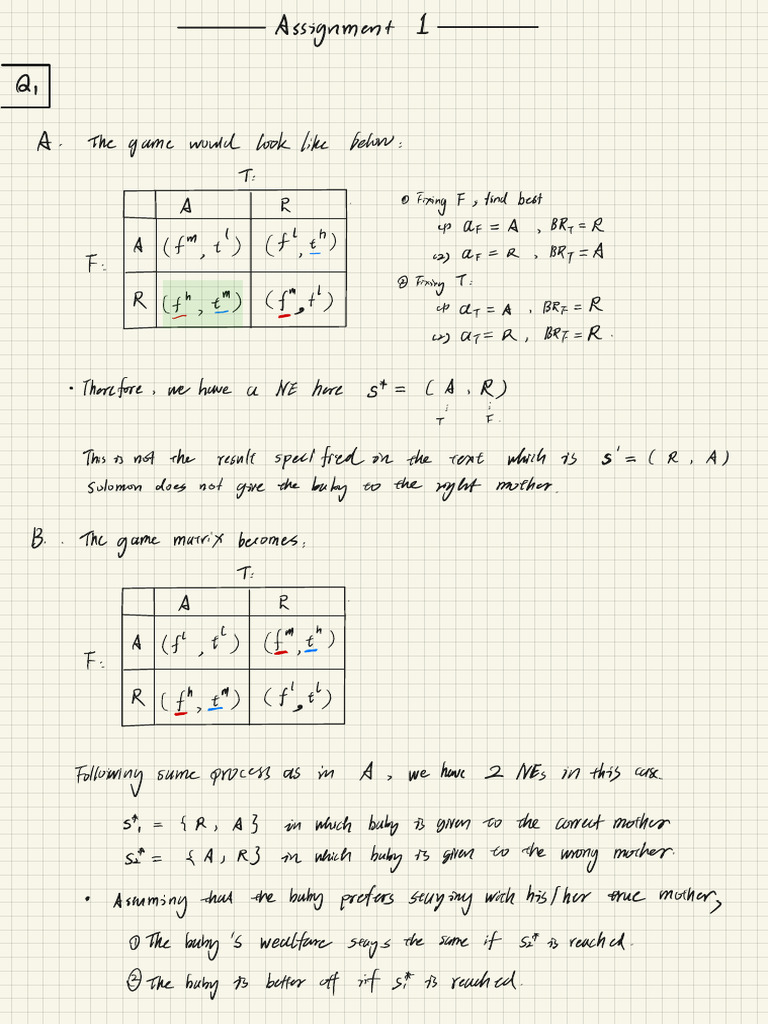 Assignment 1
Q1
A. The game would look like below:
T:
A R
A (f^m, t^l) (f^l, t^h)
F:
R (f^h, t^m) (f^m, t^l)
① Fixing F, find best
(1) a_F = A, BR_T = R
(2) a_F = R, BR_T = A
② Fixing T:
(1) a_T = A, BR_F = R
(2) a_T = R, BR_F = R.
• Therefore, we have a NE here s* = (A, R)
T F.
This is not the result specified in the text which is s' = (R, A)
Solomon does not give the baby to the right mother.
B. The game matrix becomes:
T:
A R
A (f^l, t^l) (f^m, t^h)
F:
R (f^h, t^m) (f^l, t^l)
Following same process as in A, we have 2 NEs in this case.
s*_1 = {R, A} in which baby is given to the correct mother
s*_2 = {A, R} in which baby is given to the wrong mother.
• Assuming that the baby prefers staying with his/her true mother,
① The baby's wealfare stays the same if s*_2 is reached.
② The baby is better off iif s*_1 is reached.